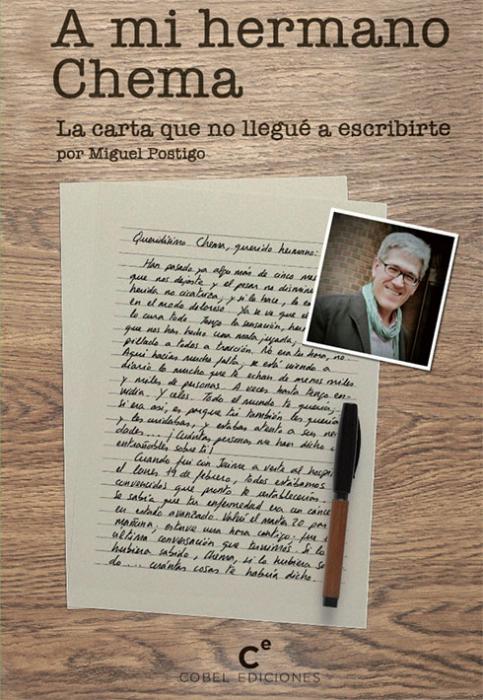 A mi hermano
Chema
La carta que no llegué a escribirte
por Miguel Postigo
Queridísimo Chema, querido hermano:
Han pasado ya algo más de cinco me
que nos dejaste y el pesar no disminu
herida no cicatriza, y si lo hace, lo
en el modo deseoso. Ya se va que el
lo cura todo. Tengo la sensación,
que nos han hecho una mala jugada,
pillado a todos a traición. No era tu hora, no.
Aquí hacías mucha falta, se está viendo a
diario lo mucho que te echan de menos miles
y miles de personas. A veces hasta tengo en-
vidia. Y celos. Todo el mundo te quería,
si era así, es porque tú también les quería
y les cuidabas, y estabas atento a sus ne
dades...! ¡Cuántas personas me han dicho
entrañables sobre ti!
Cuando fui con Jaime a verte al hospi
el lunes 19 de febrero, todos estábamos
convencidos que pronto te restablecerías.
Se sabía que tu enfermedad era un cánce
en estado avanzado. Volví el martes 20 por
mañana, estuve una hora contigo: fue
última conversación que tuvimos. Si lo
hubiera sabido, Chema, si lo hubiera sa
do... cuántas cosas te habría dicho
Ce
COBEL EDICIONES